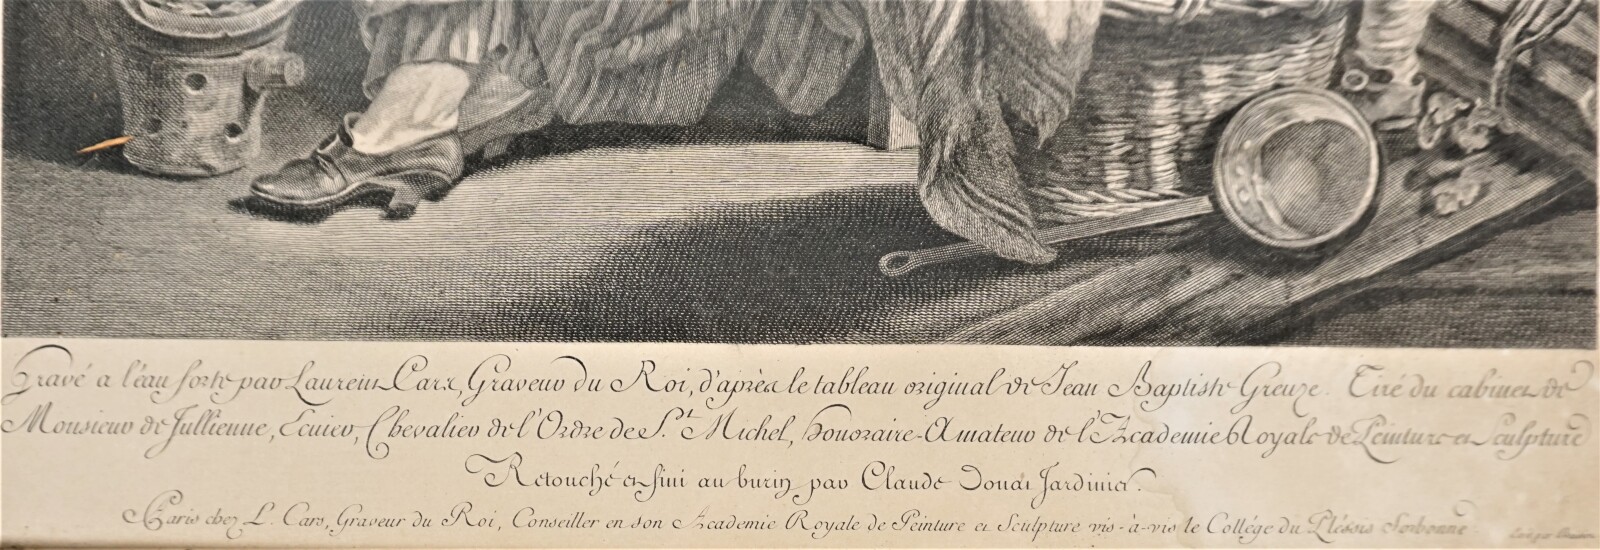 Gravé a l'éau forte par Laurent Cars, Graveur du Roi, d'après le tableau original de Jean Baptiste Greuze. Tiré du cabinet de
Monsieur de Jullienne, Ecuier, Chevalier de l'Ordre de S.t Michel, honoraire-Amateur de l'Academie Royale de Peinture et Sculpture
Retouché et fini au burin par Claude Donat Jardinier.
A Paris chez L. Cars, Graveur du Roi, Conseiller en son Academie Royale de Peinture et Sculpture vis-à-vis le Collége du Pléssis Sorbonne.